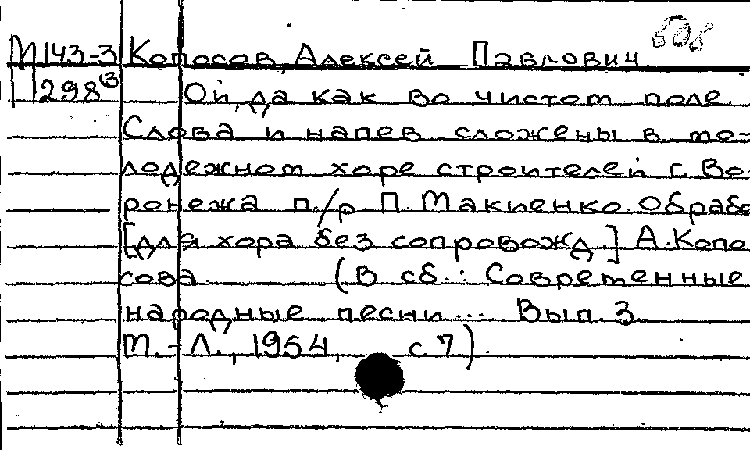 М143-3 Копосов, Алексей Павлович 508
П298(3 Ой, да как во чистом поле
Слова и напев сложены в мо-
лодежном хоре строителей г. Во-
ронежа п/р П. Макиенко. Обраб
[для хора без сопровожд.] А. Копо
сова. (В сб.: Современные
народные песни... Вып. 3
М.-Л., 1954, с. 7)